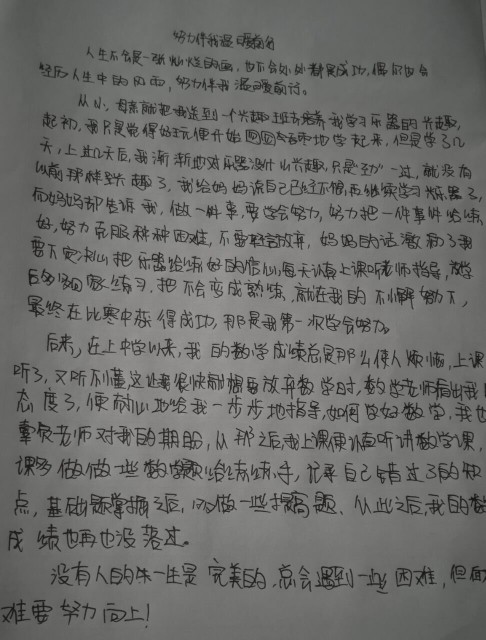 努力伴我温暖前行
人生不会是一张灿烂的画，也不会处处都是成功，偶尔也会
经历人生中的风雨，努力伴我温暖前行。
从小，母亲就把我送到一个兴趣班去培养我学习乐器的兴趣，
起初，我只是觉得好玩便开始学起来，但是学了几
天，上过几天后，我渐渐地对乐器没什么兴趣，只是三分一过，就没有
以前那样感兴趣了，我给妈妈诉自己已经不想再继续学习乐器了，
而妈妈却告诉我，做一件事，要学会努力，努力把一件事件给练
好，努力克服种种困难，不要轻言放弃，妈妈的话激励了我
要下定决心把乐器给练好的信心，每天认真上课听老师指导，放学
后多多回家练习，把不会变成熟练，就在我的不懈努力下，
最终在比赛中获得成功，那是我第一次学会努力。
后来，在上中学以来，我的数学成绩总是那么使人烦恼，上课
听了，又听不懂这让我很快就想放弃数学时，数学老师指出我
态度了，便耐心地给我一步步地指导，如何学好数学，我也
辜负老师对我的期盼，从那之后我上课便认真听讲数学课，
课多做做一些数学题给练练手，记录自己错过了的知
点，基础题掌握之后，所做一些提高题、从此之后，我的数
成绩也再也没落过。
没有人的一生是完美的，总会遇到一些困难，但面
难要努力向上！